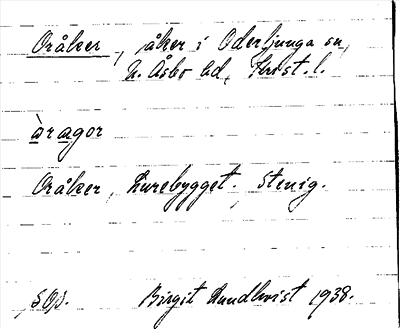 Oråker, åker i Oderljunga sn,
N. Åsbo hd, Krist. l.
àragor
Oråker, Lurebygget. Stenig.
SOp. Birgit Lundkvist 1938.